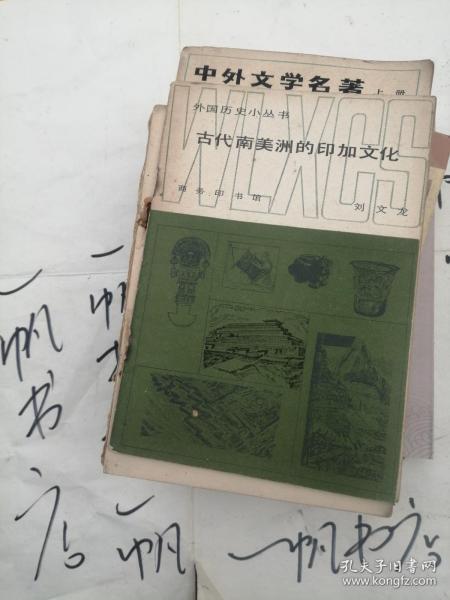 中外文学名著 上册
外国历史小丛书
WLXCS
古代南美洲的印加文化
商务印书馆 刘文龙
一帆书店
一帆
一帆
一帆书店
孔夫子旧书网
www.kongfz.com